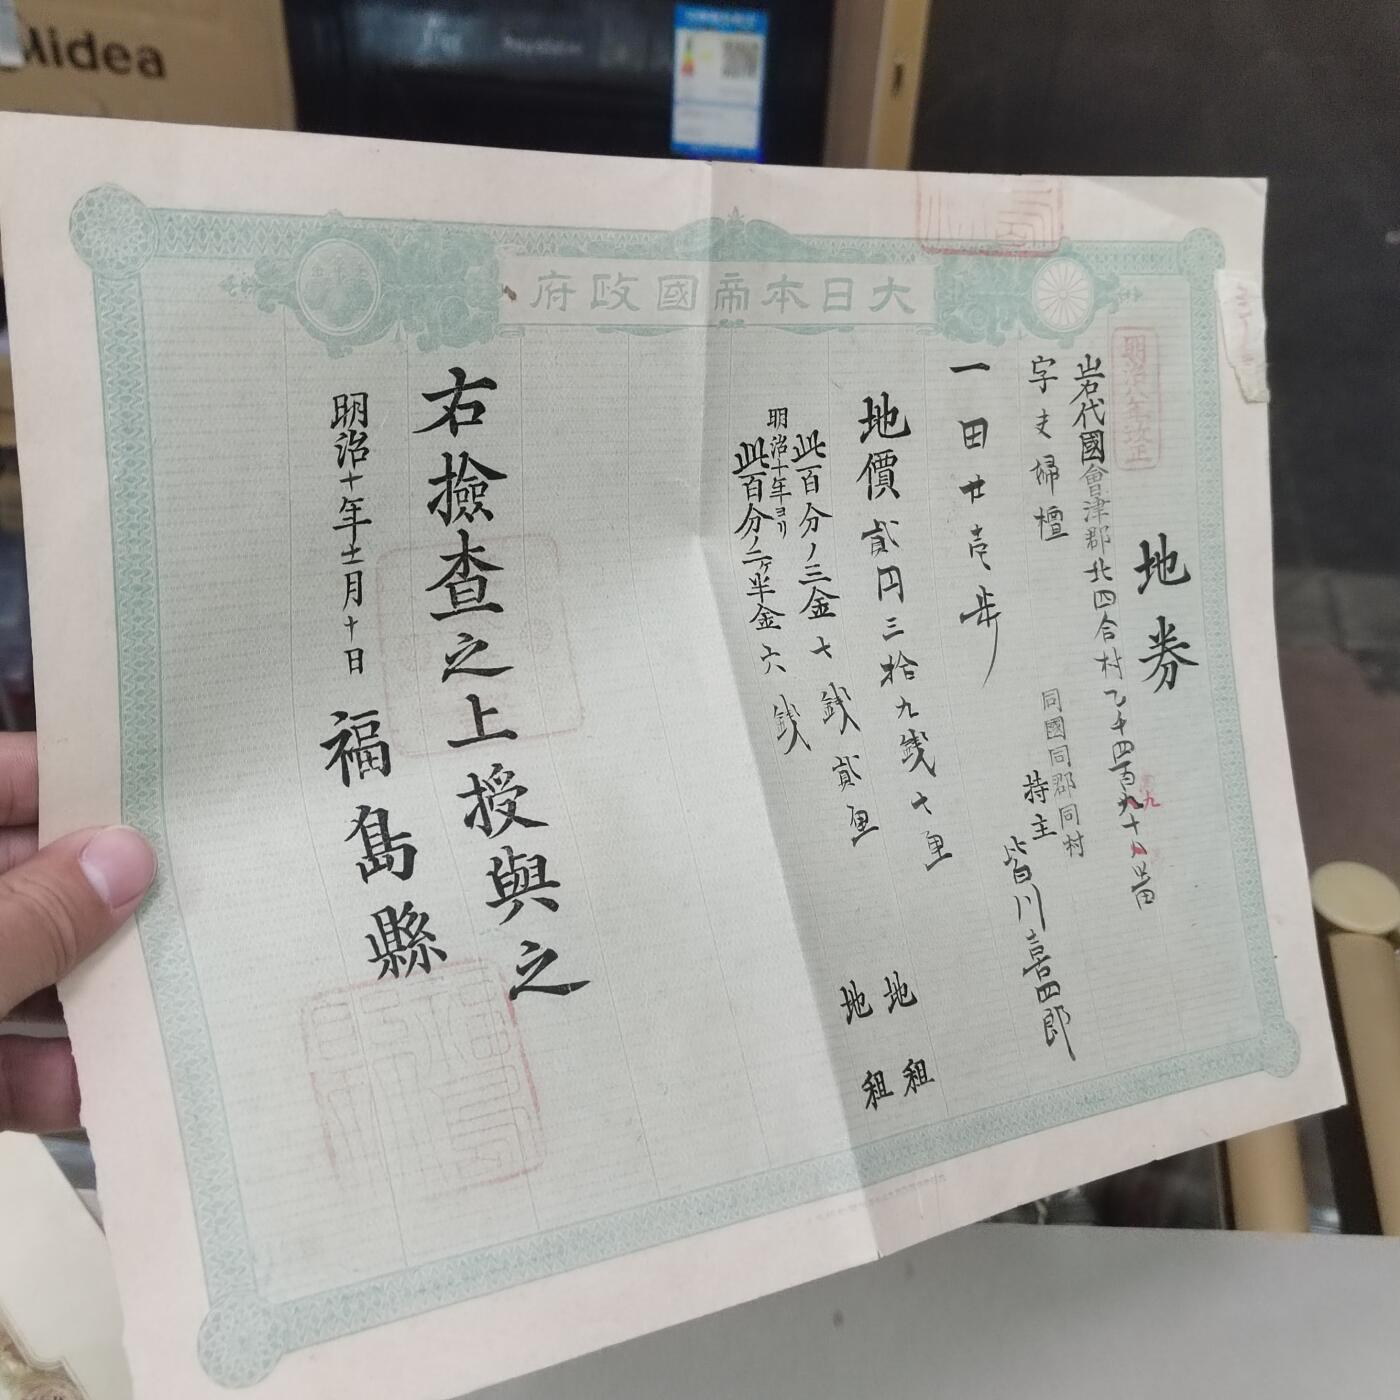 Midea
大日本帝國政府
明治八年改正
地券
岩代國會津郡北四合村乙千四百九十八番
九
字夫婦檀
同國同郡同村
持主 皆川喜四郎
一田廿壱歩
地價貳円三拾九銭七厘
此百分ノ三金七銭貳厘 地租
明治十年ヨリ
此百分ノ二ヶ半金六銭 地租
右撿査之上授與之
明治十年十二月十日 福島縣